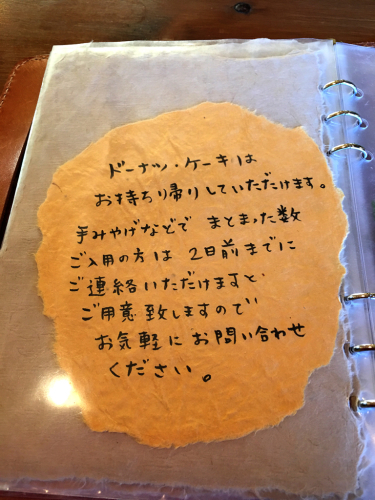 ドーナツ・ケーキは
お持ち帰りしていただけます。
手みやげなどで まとまった数
ご入用の方は 2日前までに
ご連絡いただけますと、
ご用意致しますので
お気軽に お問い合わせ
ください。